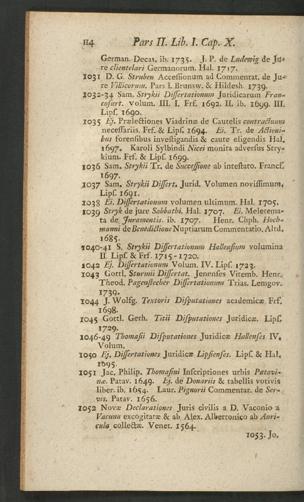 114 Pars II. Lib. I. Cap. X.
German. Decas, ib. 1735. J. P. de Ludewig de Ju-
re clientelari Germanorum. Hal. 1717.
1031 D. G. Struben Accessionum ad Commentat. de Ju-
re Villicorum. Pars I. Brunsw. & Hildesh. 1739.
1032-34 Sam. Strykii Dissertationum Juridicarum Fran-
cofurt. Volum. III. I. Frf. 1692. II. ib. 1699. III.
Lips. 1690.
1035 Ej. Prælectiones Viadrinæ de Cautelis contractuum
necessariis. Frf. & Lips. 1694. Ei. Tr. de Actioni-
bus forensibus investigandis & caute eligendis Hal.
1697. Karoli Sylbindi Nicei monita adversus Stry-
kium. Frf. & Lips. 1699.
1036 Sam. Strykii Tr. de Successione ab intestato. Francf.
1697.
1037 Sam. Strykii Dissert. Jurid. Volumen novissimum,
Lips. 1691.
1038 Ei. Dissertationum volumen ultimum. Hal. 1705.
1039 Stryk de jure Sabbathi. Hal. 1707. Ei. Meletema-
ta de Juramentis. ib. 1707. Henr. Chph. Hoch-
manni de Benedictione Nuptiarum Commentatio. Altd.
1685.
1040-41 S. Strykii Dissertationum Hallensium volumina
II. Lips. & Frf. 1715-1720.
1042 Ej. Dissertationum Volum. IV. Lips. 1723.
1043 Gottl. Sturmii Dissertat. Jenenses Vitemb. Henr.
Theod. Pagenstecher Dissertationum Trias. Lemgov.
1739.
1044 J. Wolfg. Textoris Disputationes academicæ Frf.
1698.
1045 Gottl. Gerh. Titii Disputationes Juridicæ. Lips.
1729.
1046-49 Thomasii Disputationes Juridicæ Hallenses IV.
Volum.
1050 Ej. Dissertationes Juridicæ Lipsienses. Lips. & Hal.
1695.
1051 Jac. Philip. Thomasini Inscriptiones urbis Patavi-
næ. Patav. 1649. Ej. de Donariis & tabellis votivis
liber. ib. 1654. Laur. Pignorii Commentar. de Ser-
vis. Patav. 1656.
1052 Novæ Declarationes Juris civilis a D. Vaconio a
Vacuna excogitatæ & ab Alex. Albertonico ab Auri-
cula collectæ. Venet. 1564.
1053. Jo.